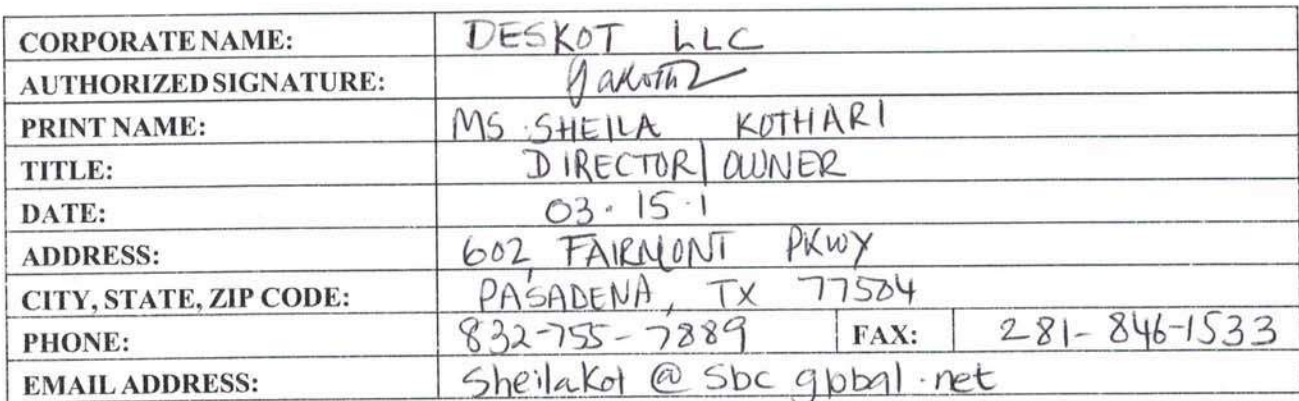 CORPORATE NAME: DESKOT LLC
AUTHORIZED SIGNATURE:
PRINT NAME: MS. SHEILA KOTHARI
TITLE: DIRECTOR/OWNER
DATE: 03.15.1
ADDRESS: 602, FAIRMONT PKWY
CITY, STATE, ZIP CODE: PASADENA, TX 77504
PHONE: 832-755-7889 FAX: 281-846-1533
EMAIL ADDRESS: Sheilakot@sbcglobal.net